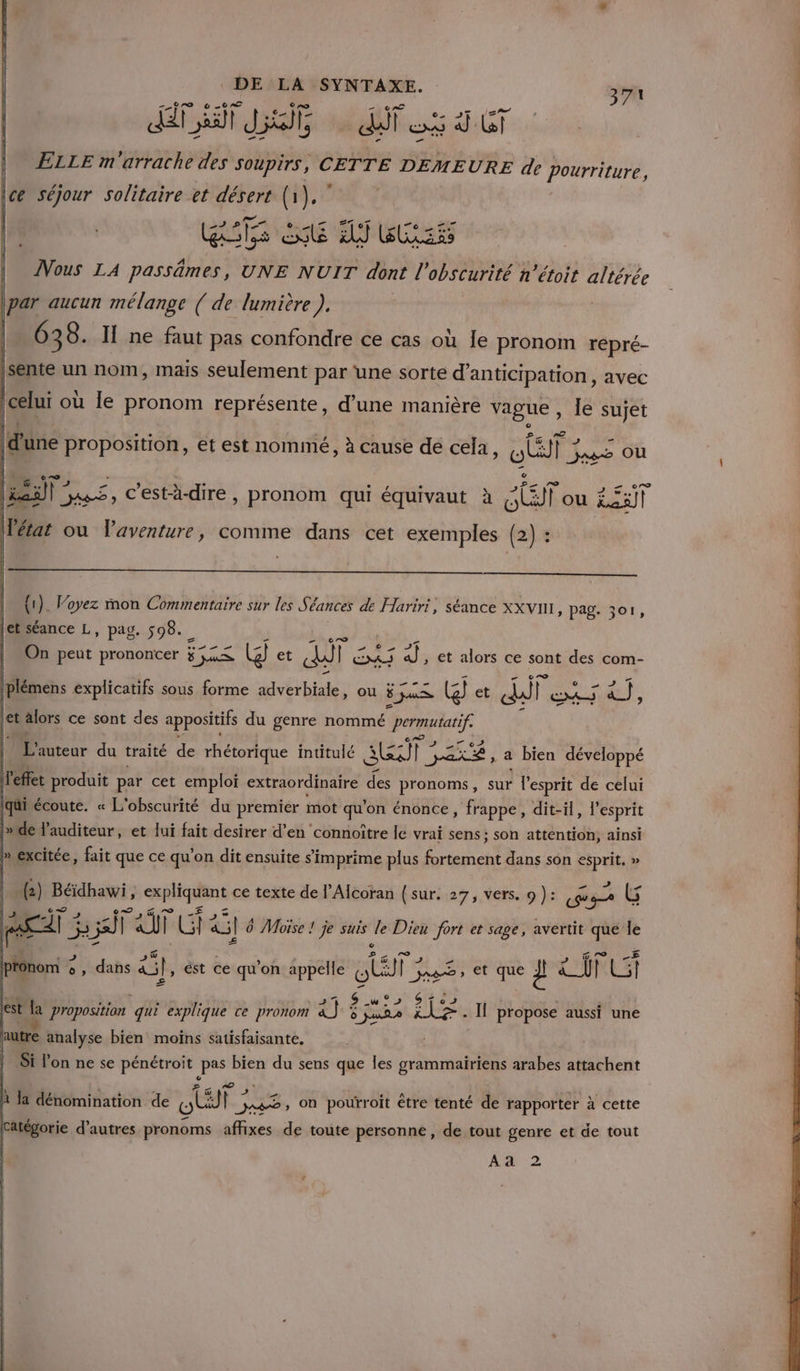 DE LA SYNTAXE. 371
ELLE m'arrache des soupirs, CETTE DEMEURE de pourriture,
ce séjour solitaire et désert (1).
Nous LA passâmes, UNE NUIT dont l'obscurité n'étoit altérée
par aucun mélange ( de lumière ).
638. Il ne faut pas confondre ce cas où le pronom repré-
sente un nom, mais seulement par une sorte d'anticipation, avec
celui où le pronom représente, d'une manière vague, le sujet
d'une proposition, et est nommé, à cause de cela, ضمير الشان ou
ضمير القصة, c'est-à-dire, pronom qui équivaut à الشان ou القصة
l'état ou l'aventure, comme dans cet exemples (2) :
(1). Voyez mon Commentaire sur les Séances de Hariri, séance XXVIII, pag. 301,
et séance L, pag. 598.
On peut prononcer et , et alors ce sont des com-
plémens explicatifs sous forme adverbiale, ou et
et alors ce sont des appositifs du genre nommé permutatif.
L'auteur du traité de rhétorique intitulé , a bien développé
l'effet produit par cet emploi extraordinaire des pronoms, sur l'esprit de celui
qui écoute. « L'obscurité du premier mot qu'on énonce, frappe, dit-il, l'esprit
» de l'auditeur, et lui fait desirer d'en connoître le vrai sens; son attention, ainsi
» excitée, fait que ce qu'on dit ensuite s'imprime plus fortement dans son esprit. »
(2) Béidhawi, expliquant ce texte de l'Alcoran (sur. 27, vers. 9): يا موسى
انه انا الله العزيز الحكيم ô Moïse ! je suis le Dieu fort et sage, avertit que le
pronom ه, dans انه, est ce qu'on appelle ضمير الشان, et que انا الله
est la proposition qui explique ce pronom جملة مفسرة له. Il propose aussi une
autre analyse bien moins satisfaisante.
Si l'on ne se pénétroit pas bien du sens que les grammairiens arabes attachent
à la dénomination de ضمير الشان, on pourroit être tenté de rapporter à cette
catégorie d'autres pronoms affixes de toute personne, de tout genre et de tout
Aa 2